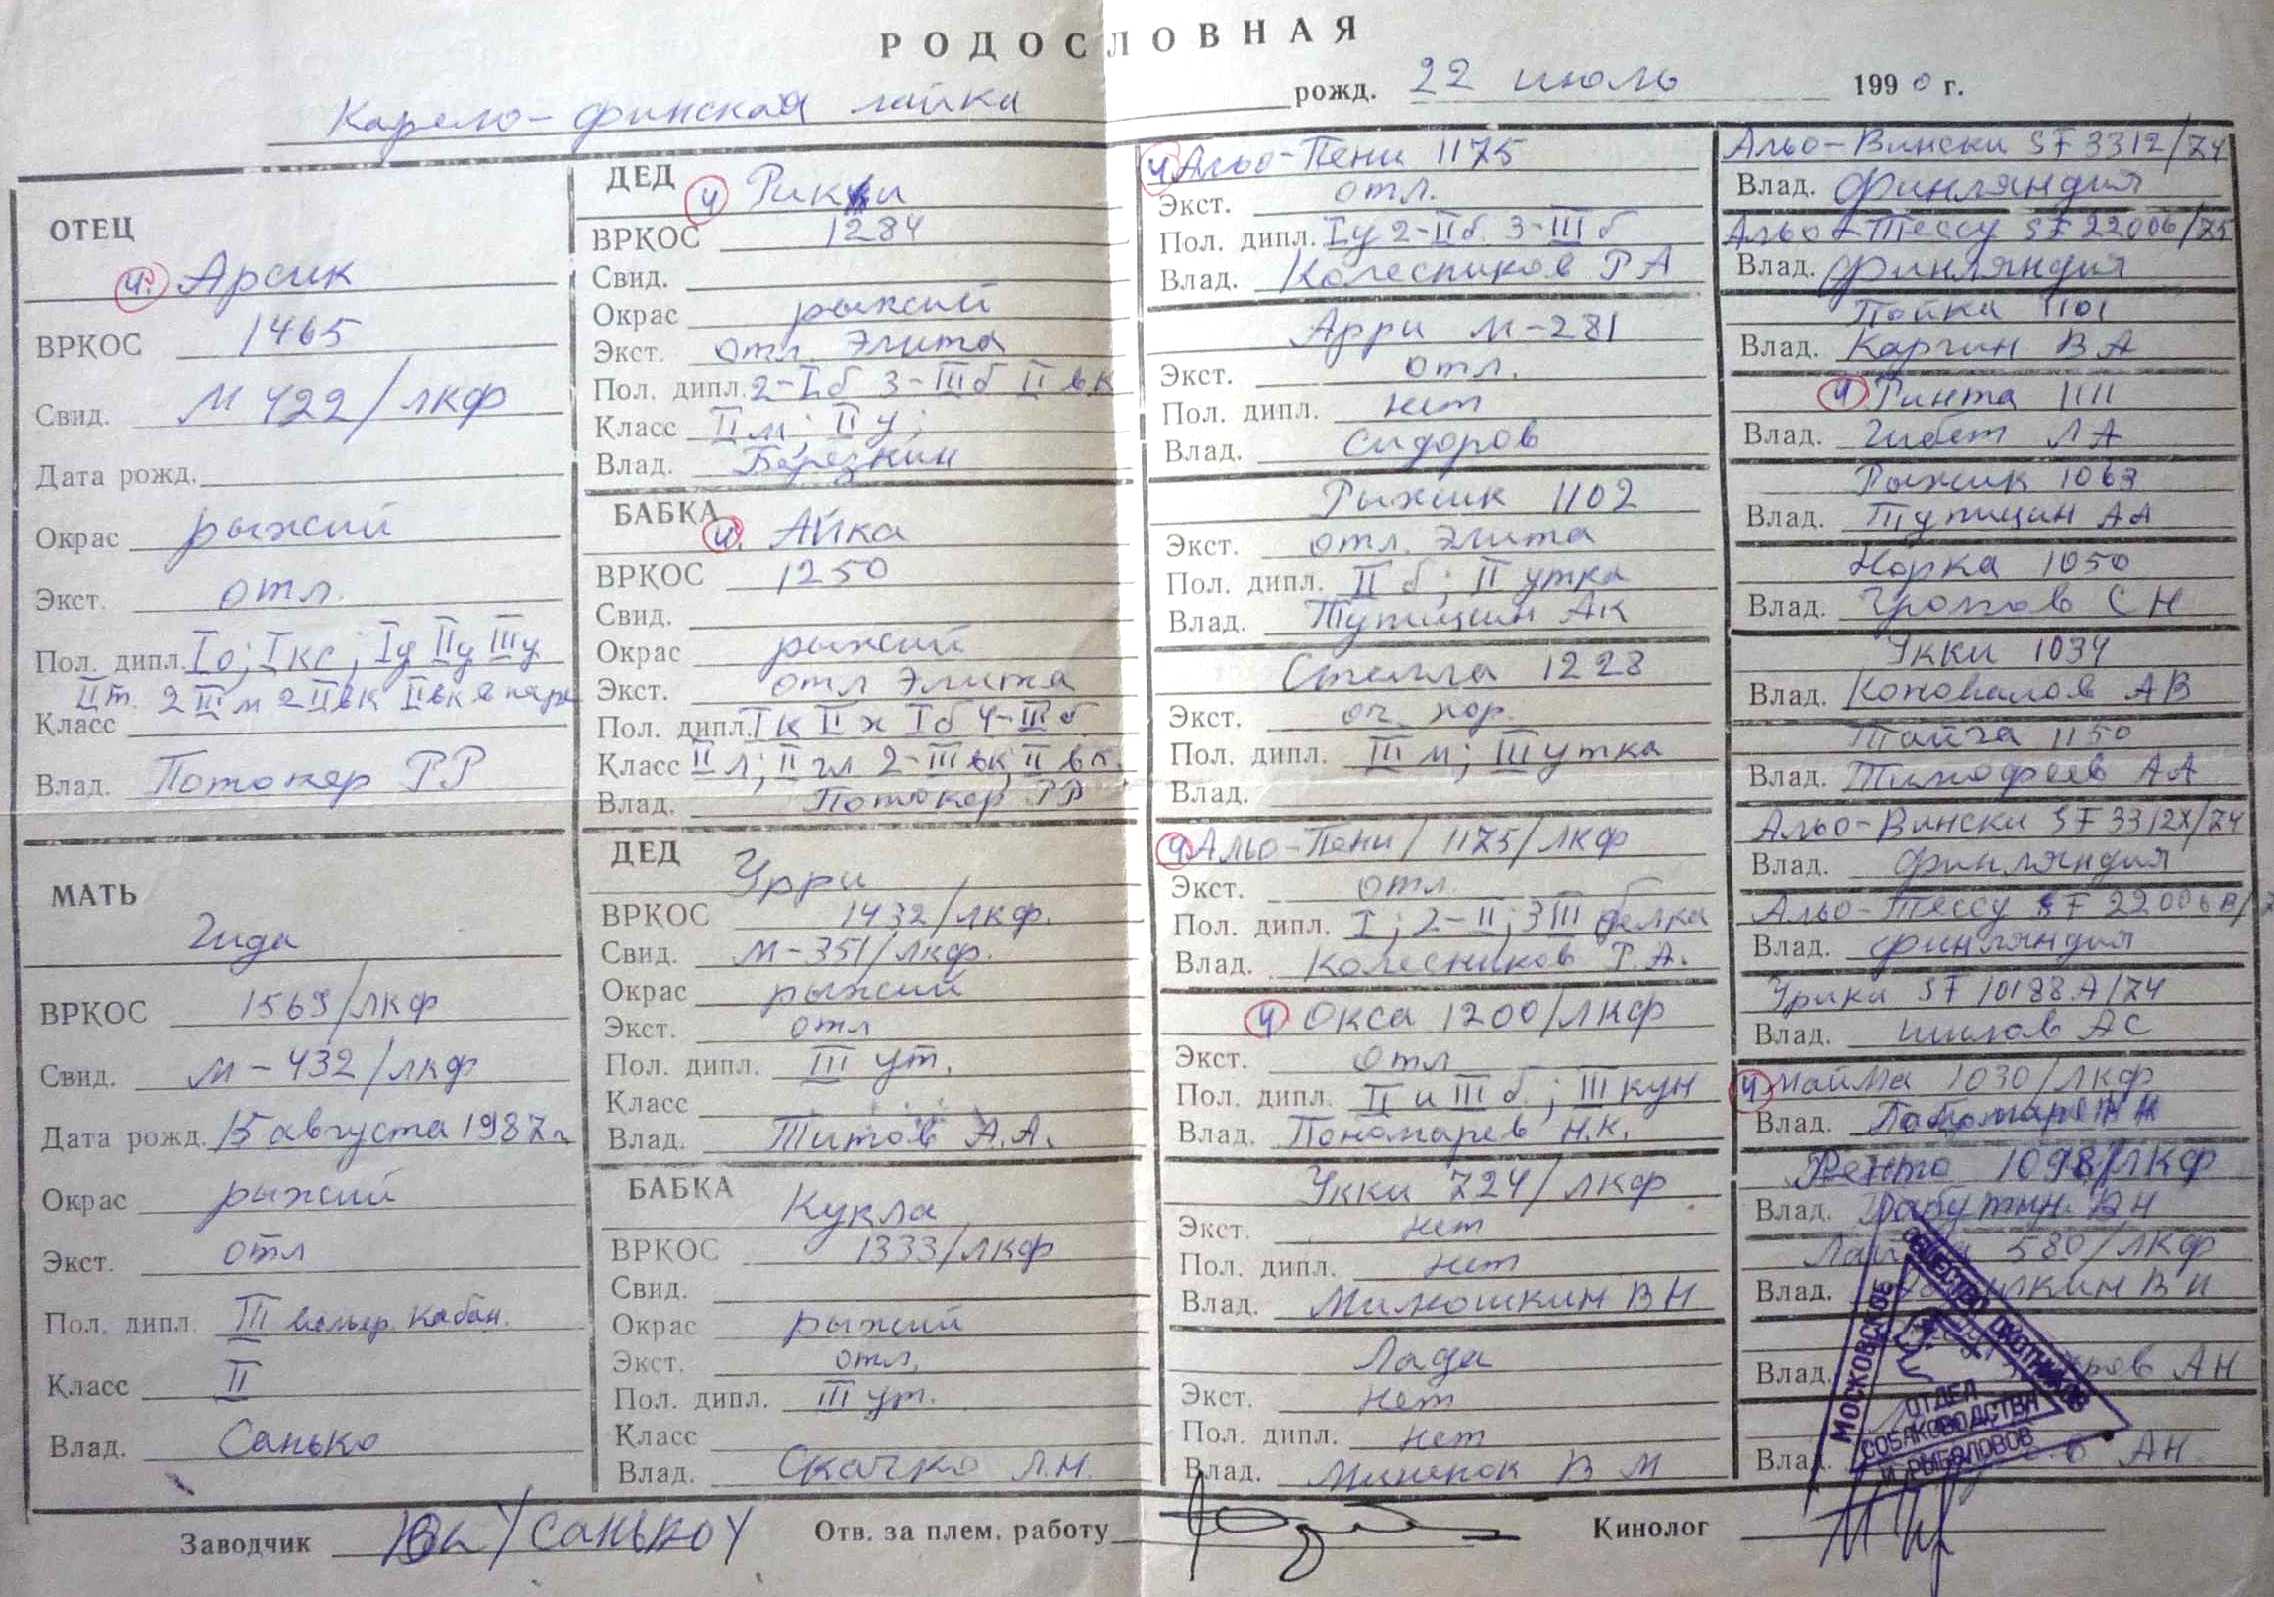 РОДОСЛОВНАЯ
Карело-финская лайка рожд. 22 июль 1990 г.
ОТЕЦ
ч. Арсик
ВРКОС 1465
Свид. М 422/лкф
Дата рожд.
Окрас рыжий
Экст. отл.
Пол. дипл. Iо; Iкс; Iу IIу IIIу
IIт. 2 IIIм 2 IIвк IIвк в паре
Класс
Влад. Потокер РР
МАТЬ
Гида
ВРКОС 1569/ЛКФ
Свид. М-432/лкф
Дата рожд. 15 августа 1987г
Окрас рыжий
Экст. отл
Пол. дипл. III вольер. кабан.
Класс II
Влад. Санько
ДЕД
ч Рикки
ВРКОС 1284
Свид.
Окрас рыжий
Экст. отл. Элита
Пол. дипл. 2-Iб 3-IIIб II вк
Класс IIм; IIу;
Влад. Березкин
БАБКА
ч. Айка
ВРКОС 1250
Свид.
Окрас рыжий
Экст. отл Элита
Пол. дипл. Iк IIх Iб 4-IIIб
Класс IIл; IIгл 2-IIIвк; IIвк.
Влад. Потокер РР
ДЕД
Урри
ВРКОС 1432/лкф.
Свид. М-351/лкф.
Окрас рыжий
Экст. отл
Пол. дипл. III ут.
Класс
Влад. Титов А.А.
БАБКА
Кукла
ВРКОС 1333/лкф
Свид.
Окрас рыжий
Экст. отл.
Пол. дипл. III ут.
Класс
Влад. Скачко Л.Н.
ч Альо-Пени 1175
Экст. отл.
Пол. дипл. Iу 2-IIб. 3-IIIб
Влад. Колесников РА
Арри М-281
Экст. отл.
Пол. дипл. нет
Влад. Сидоров
Рыжик 1102
Экст. отл. Элита
Пол. дипл. IIб; II утка
Влад. Тупицын АК
Стелла 1228
Экст. оч. хор.
Пол. дипл. III м; III утка
Влад.
ч Альо-Пени/1175/ЛКФ
Экст. отл.
Пол. дипл. I; 2-II; 3III белка
Влад. Колесников Р.А.
ч Окса 1200/ЛКФ
Экст. отл
Пол. дипл. II и III б.; III кун
Влад. Пономарев Н.К.
Укки 724/ЛКФ
Экст. нет
Пол. дипл. нет
Влад. Милюшкин ВН
Лада
Экст. нет
Пол. дипл. нет
Влад. Миненок В М
Альо-Вински SF 3312/74
Влад. Финляндия
Альо-Тессу SF 22006/75
Влад. Финляндия
Пойка 1101
Влад. Каргин ВА
ч Ринта 1111
Влад. Гибет ЛА
Рыжик 1063
Влад. Тупицин АА
Норка 1050
Влад. Громов СН
Укки 1034
Влад. Коновалов АВ
Тайга 1150
Влад. Тимофеев АА
Альо-Вински SF 3312Х/74
Влад. Финляндия
Альо-Тессу SF 22006В/7
Влад. Финляндия
Урики SF 10188А/74
Влад. Шилов АС
ч Найма 1030/ЛКФ
Влад.
Ренто 1098/ЛКФ
Влад. ВН
580/ЛКФ
Влад. ВИ
Влад. АН
Влад. АН.
МОСКОВСКОЕ
ОБЩЕСТВО ОХОТНИКОВ
ОТДЕЛ
СОБАКОВОДСТВА
И РЫБОЛОВОВ
Заводчик /САНЬКО/ Отв. за плем. работу Кинолог